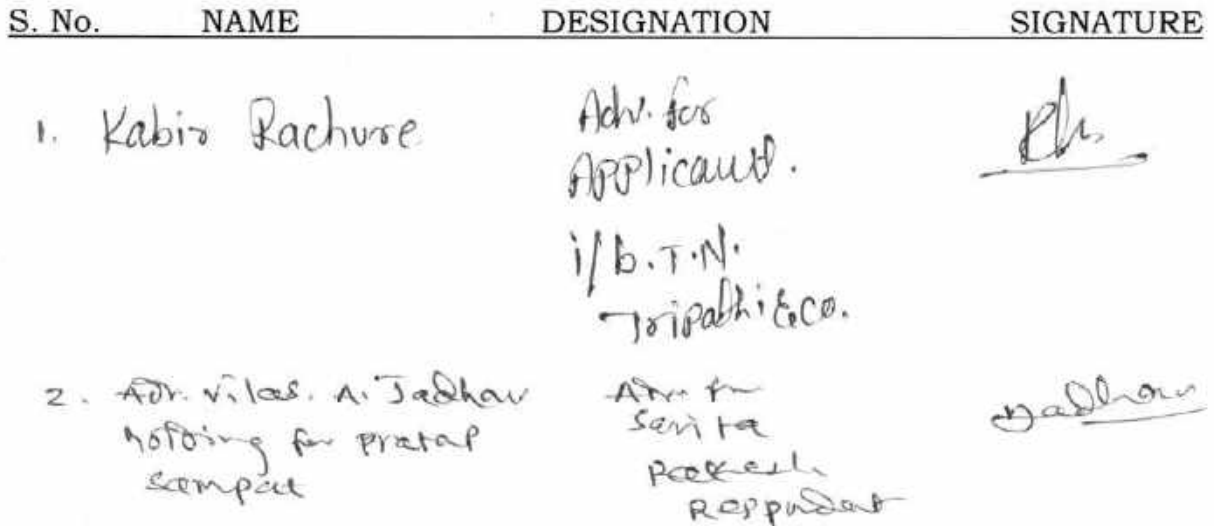 S. No. NAME DESIGNATION SIGNATURE
1. Kabir Rachure Adv. for
Applicant.
i/b. T.N.
Tripathi & Co.
2. Adv. Vilas. A. Jadhav Adv for
Holding for Pratap Sarita
Sampat
Respondent
Jadhav